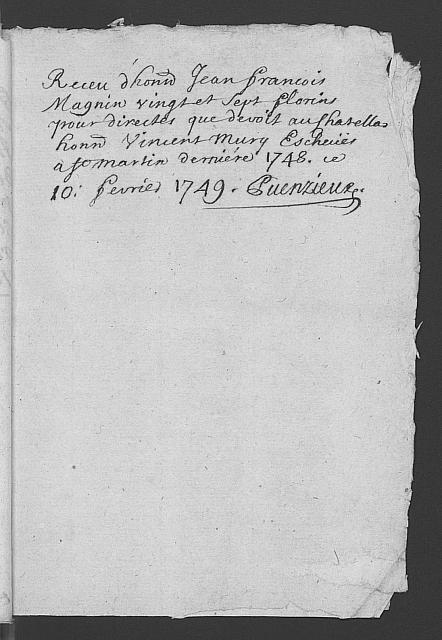 Receu d'honn̄ Jean francois
Magnin vingt et sept florins
pour directes que devoit au Chatella
honn̄ Vincent Mury Escheües
a St martin derniére 1748. ce
10: fevrier 1749. Cuenzieux.